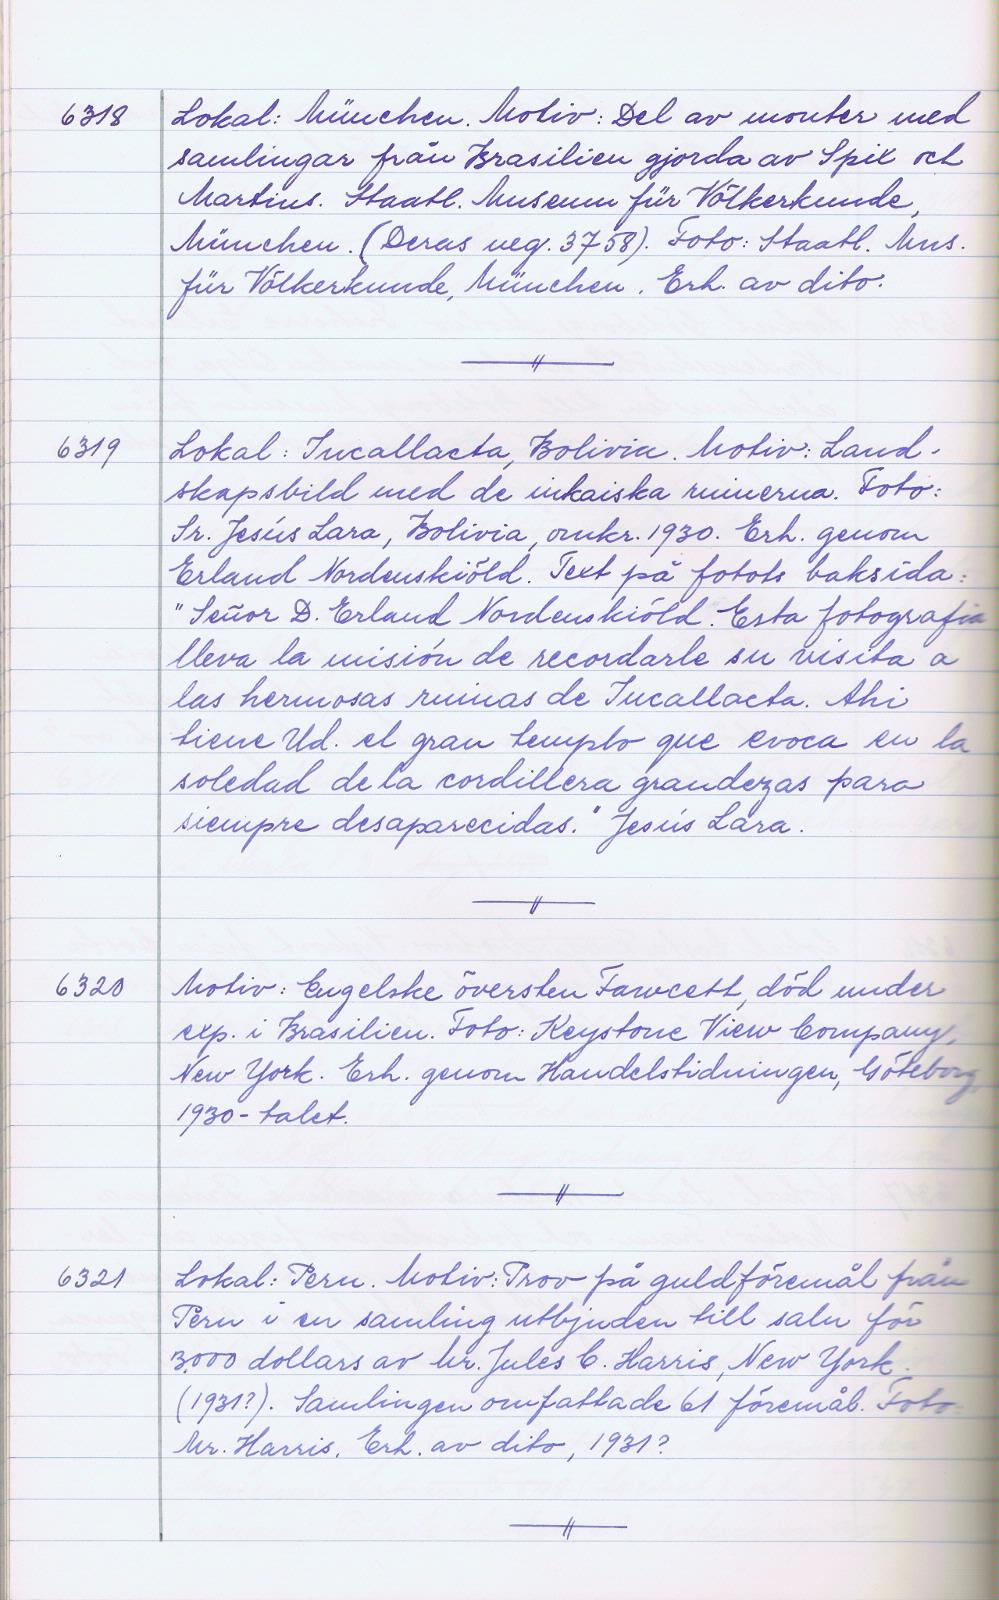 6318 Lokal: München. Motiv: Del av monter med
samlingar från Brasilien gjorda av Spix och
Martius. Staatl. Museum für Völkerkunde,
München. (Deras neg. 3758). Foto: Staatl. Mus.
für Völkerkunde, München. Erh. av dito.
6319 Lokal: Incallacta, Bolivia. Motiv: Land-
skapsbild med de inkaiska ruinerna. Foto:
Sr. Jesús Lara, Bolivia, omkr. 1930. Erh. genom
Erland Nordenskiöld. Text på fotots baksida:
"Señor D. Erland Nordenskiöld. Esta fotografia
lleva la misión de recordarle su visita a
las hermosas ruinas de Incallacta. Ahi
tiene Ud. el gran templo que evoca en la
soledad de la cordillera grandezas para
siempre desaparecidas." Jesús Lara.
6320 Motiv: Engelske översten Fawcett, död under
exp. i Brasilien. Foto: Keystone View Company,
New York. Erh. genom Handelstidningen, Göteborg,
1930-talet.
6321 Lokal: Peru. Motiv: Prov på guldföremål från
Peru i en samling utbjuden till salu för
3.000 dollars av Mr. Jules C. Harris, New York.
(1931?). Samlingen omfattade 61 föremål. Foto:
Mr. Harris. Erh. av dito, 1931?